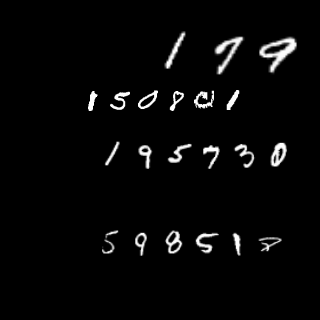 179
150801
195730
598518